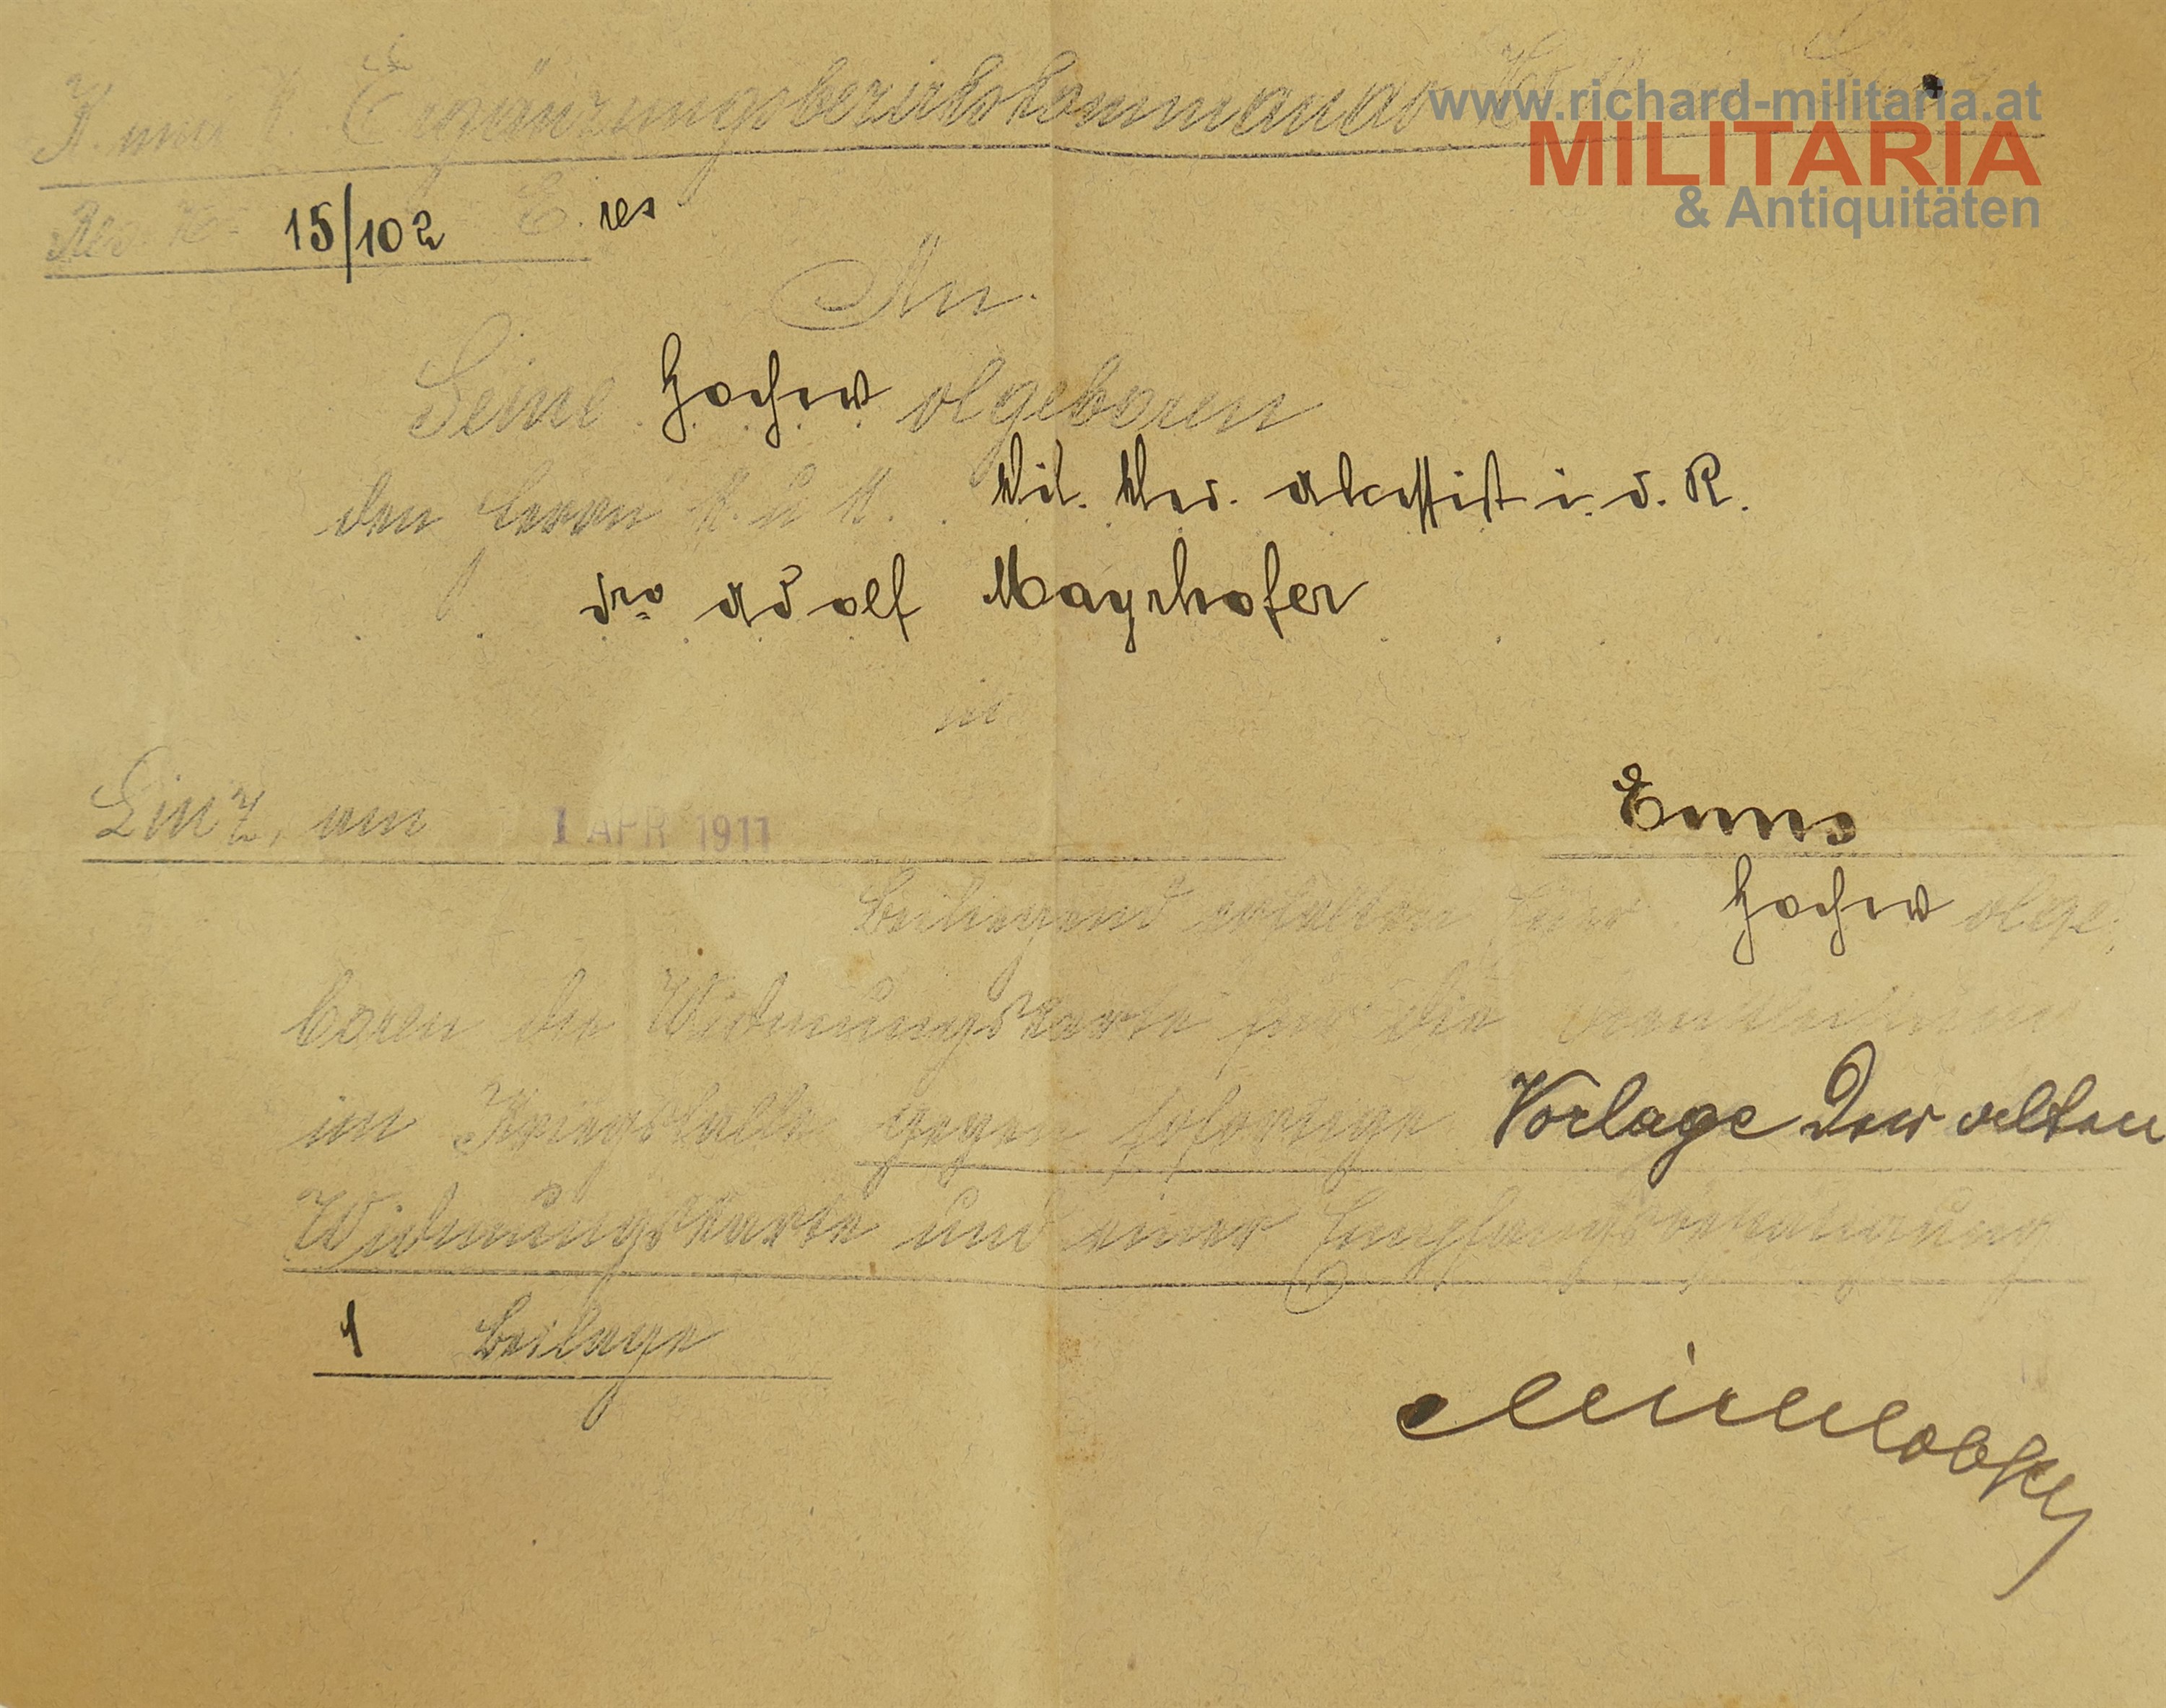 K. und k. Ergänzungsbezirkskommando
www.richard-militaria.at
MILITARIA
& Antiquitäten
Res. No 15/102 E. res
An
Seine Hochwolgeboren
den Herrn k. u. k. Mil. Med. Akzessist i. d. R.
Dr. Adolf Mayrhofer
in
Enns
Linz, am 1 APR 1911
Beiliegend erhalten Euer Hochwolge-
boren die Widmungskarte für die
im Kriegsfalle gegen sofortige Vorlage der alten
Widmungskarte und einer Empfangsbestätigung
1 Beilage